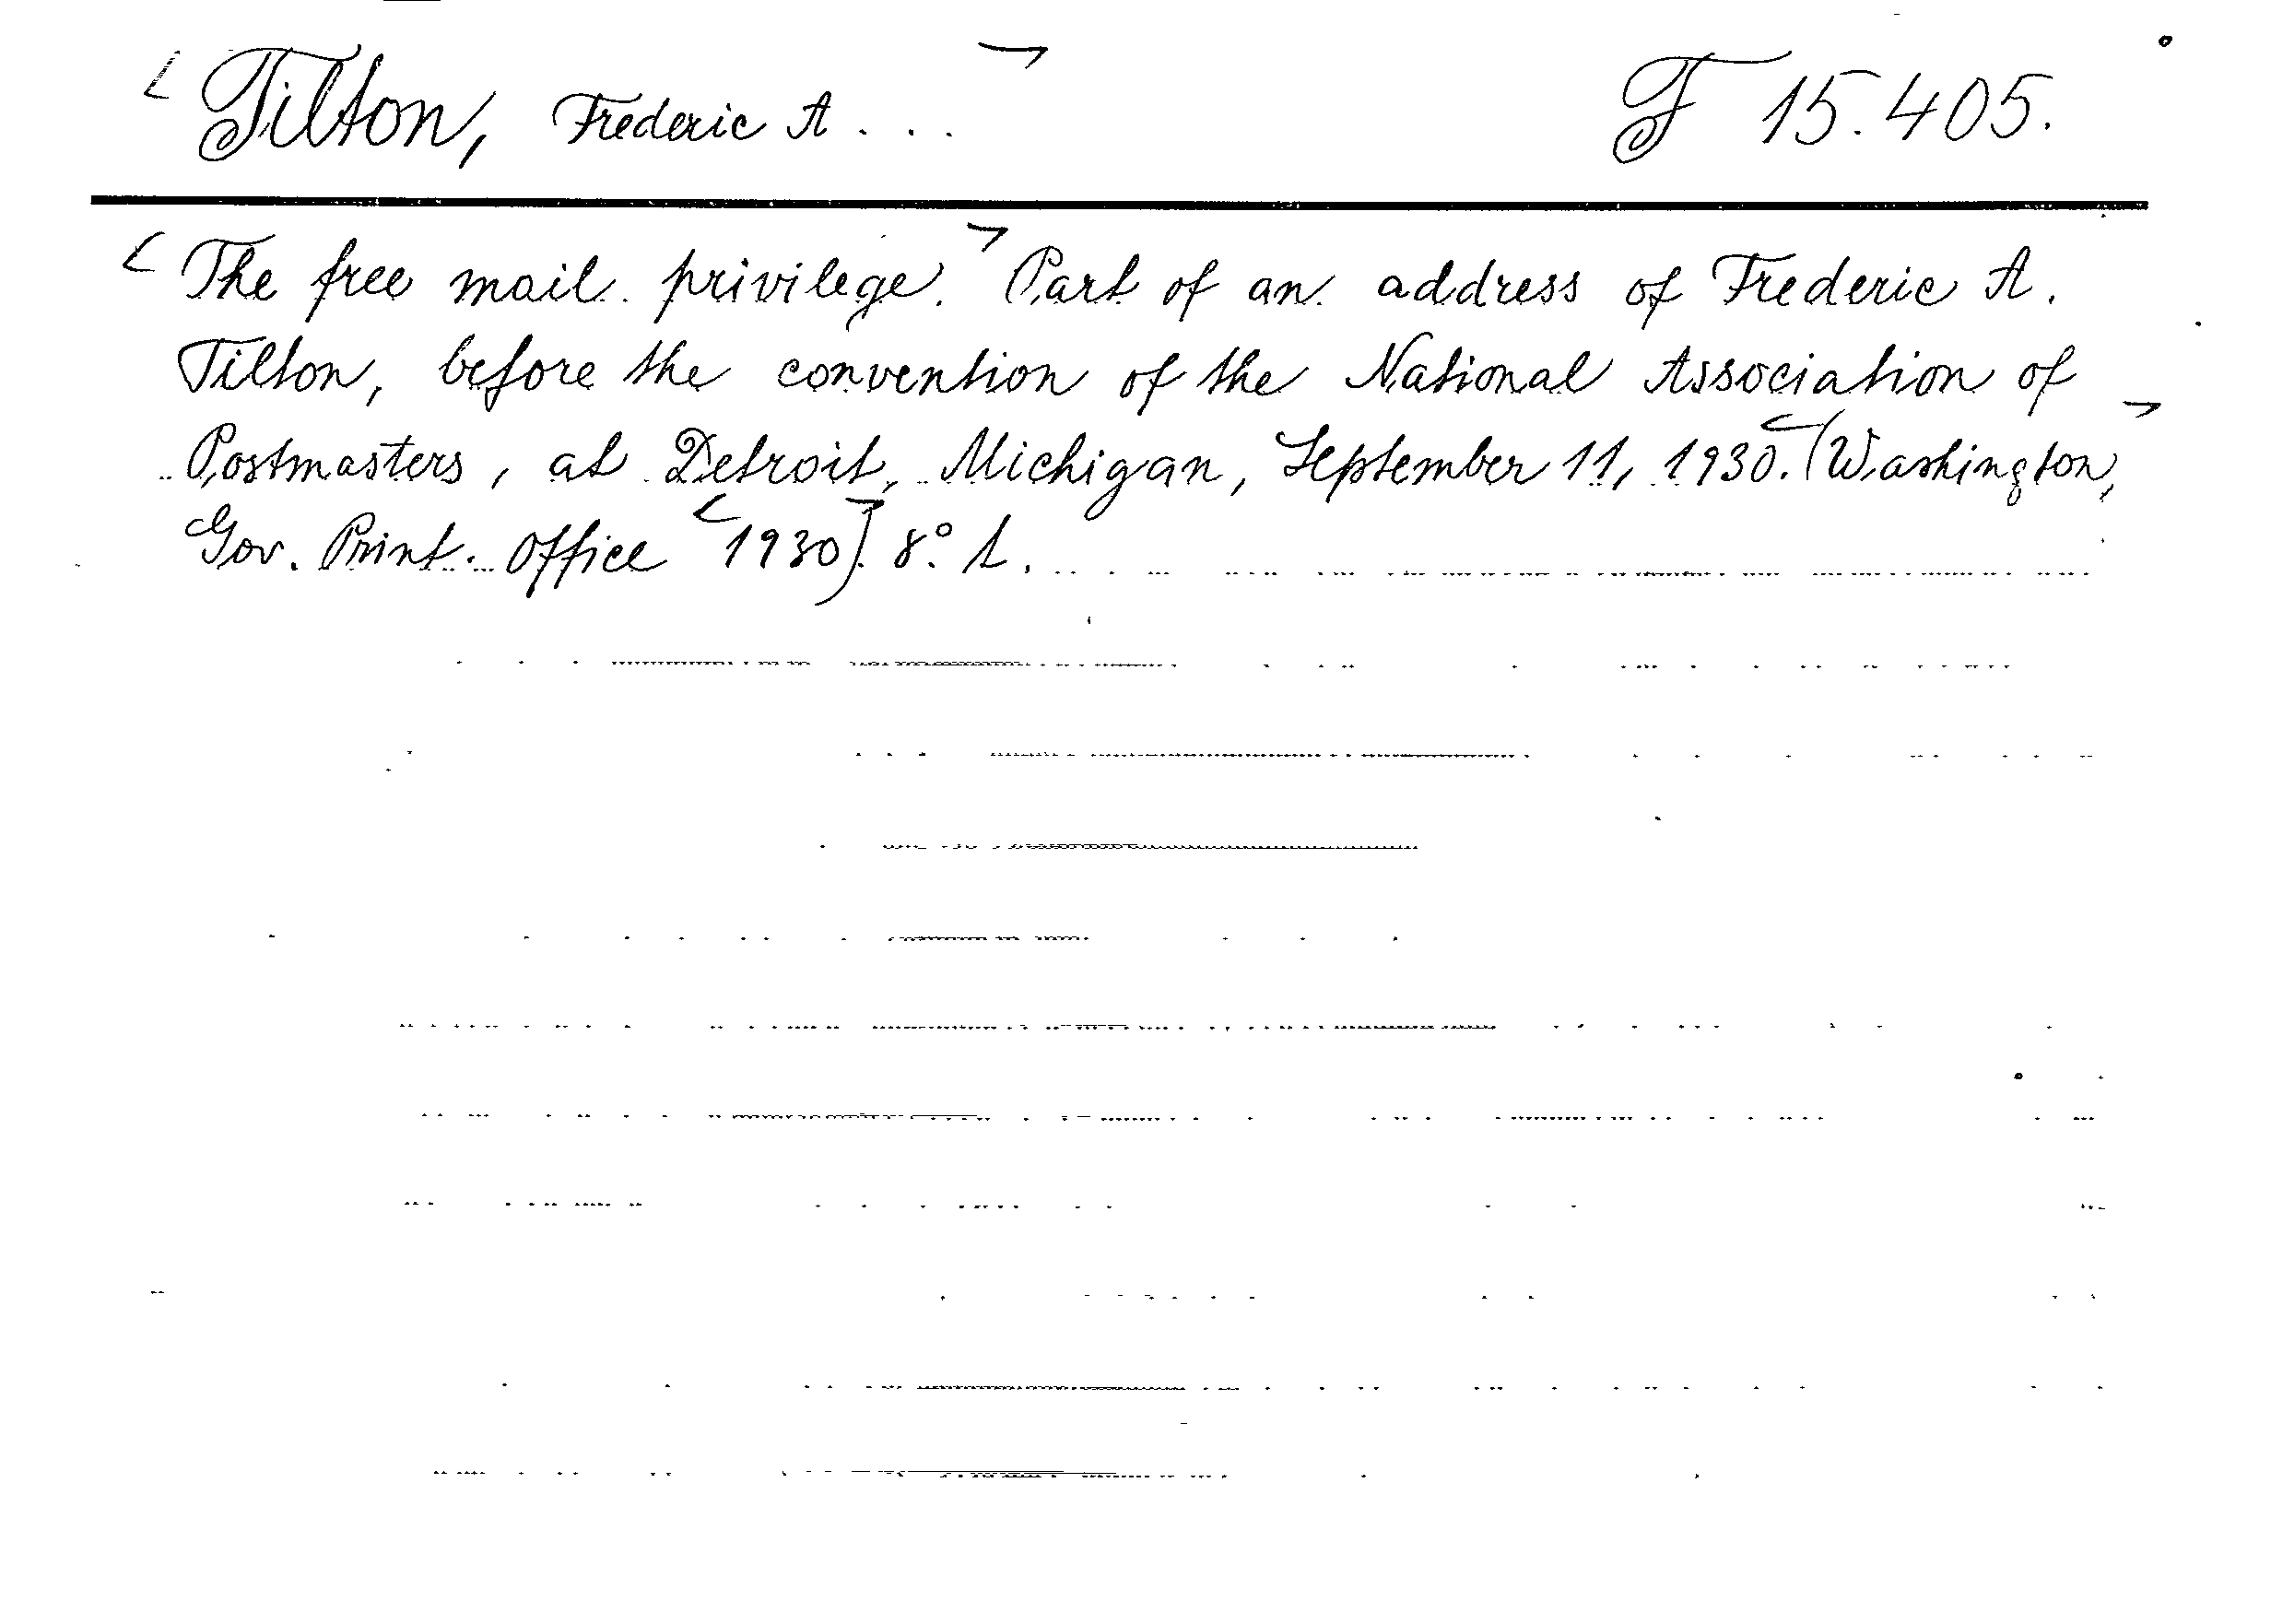 Tilton, Frederic A . . . F 15.405.
The free mail privilege. Part of an address of Frederic A.
Tilton, before the convention of the National Association of
Postmasters, at Detroit, Michigan, September 11, 1930. (Washington,
Gov. Print. Office 1930]. 8° L.